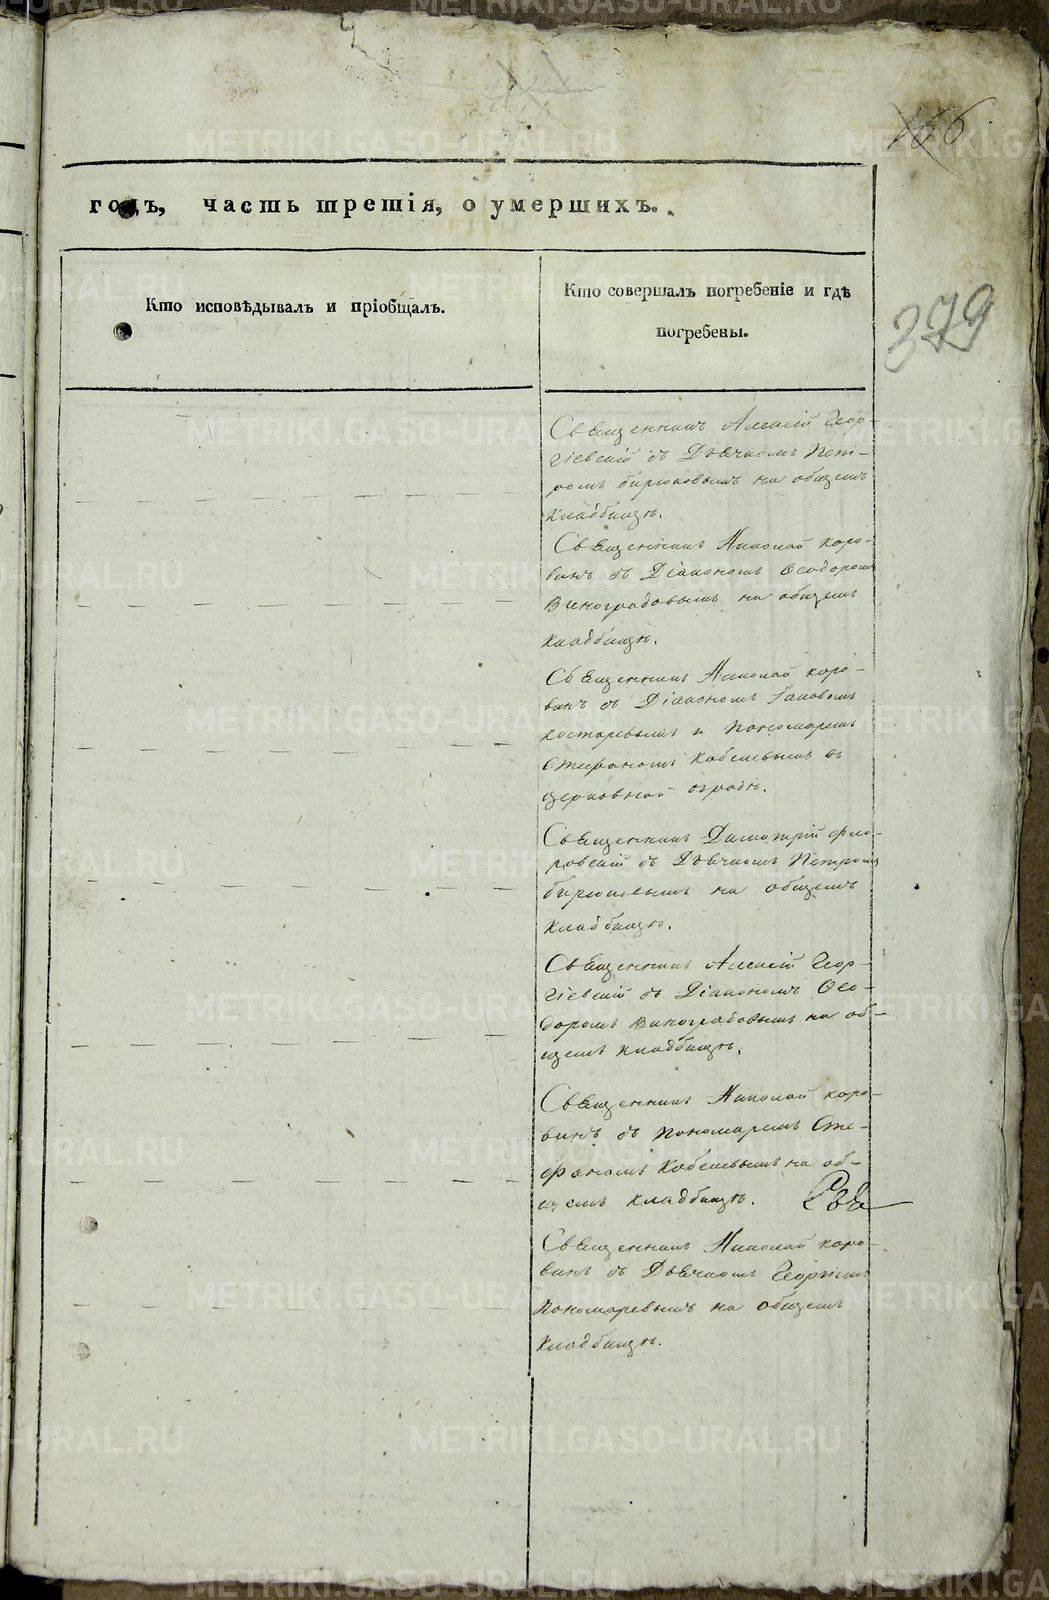 166
годъ, часть третія, о умершихъ.
379
Кто исповѣдывалъ и пріобщалъ.
Кто совершалъ погребеніе и гдѣ
погребены.
Священникъ Алексій Геор-
гіевскій съ Дьячкомъ Пет-
ромъ бирюковымъ на общемъ
кладбищѣ.
Священникъ Николай коро-
винъ съ Діакономъ Ѳеодоромъ
Виноградовымъ на общемъ
кладбищѣ.
Священникъ Николай коро-
винъ съ Діакономъ Іаковомъ
костаревымъ и Пономаремъ
Стефаномъ кобелевымъ въ
церковной оградѣ.
Священникъ Димитрій фло-
ровскій съ Дьячкомъ Петромъ
бирюковымъ на общемъ
кладбищѣ.
Священникъ Алексій Геор-
гіевскій съ Діакономъ Ѳео-
доромъ Виноградовымъ на об-
щемъ кладбищѣ.
Священникъ Николай коро-
винъ съ Пономаремъ Сте-
фаномъ кобелевымъ на об-
щемъ кладбищѣ.
Священникъ Николай коро-
винъ съ Дьячкомъ Георгіемъ
Пономаревымъ на общемъ
кладбищѣ.
METRIKI.GASO-URAL.RU